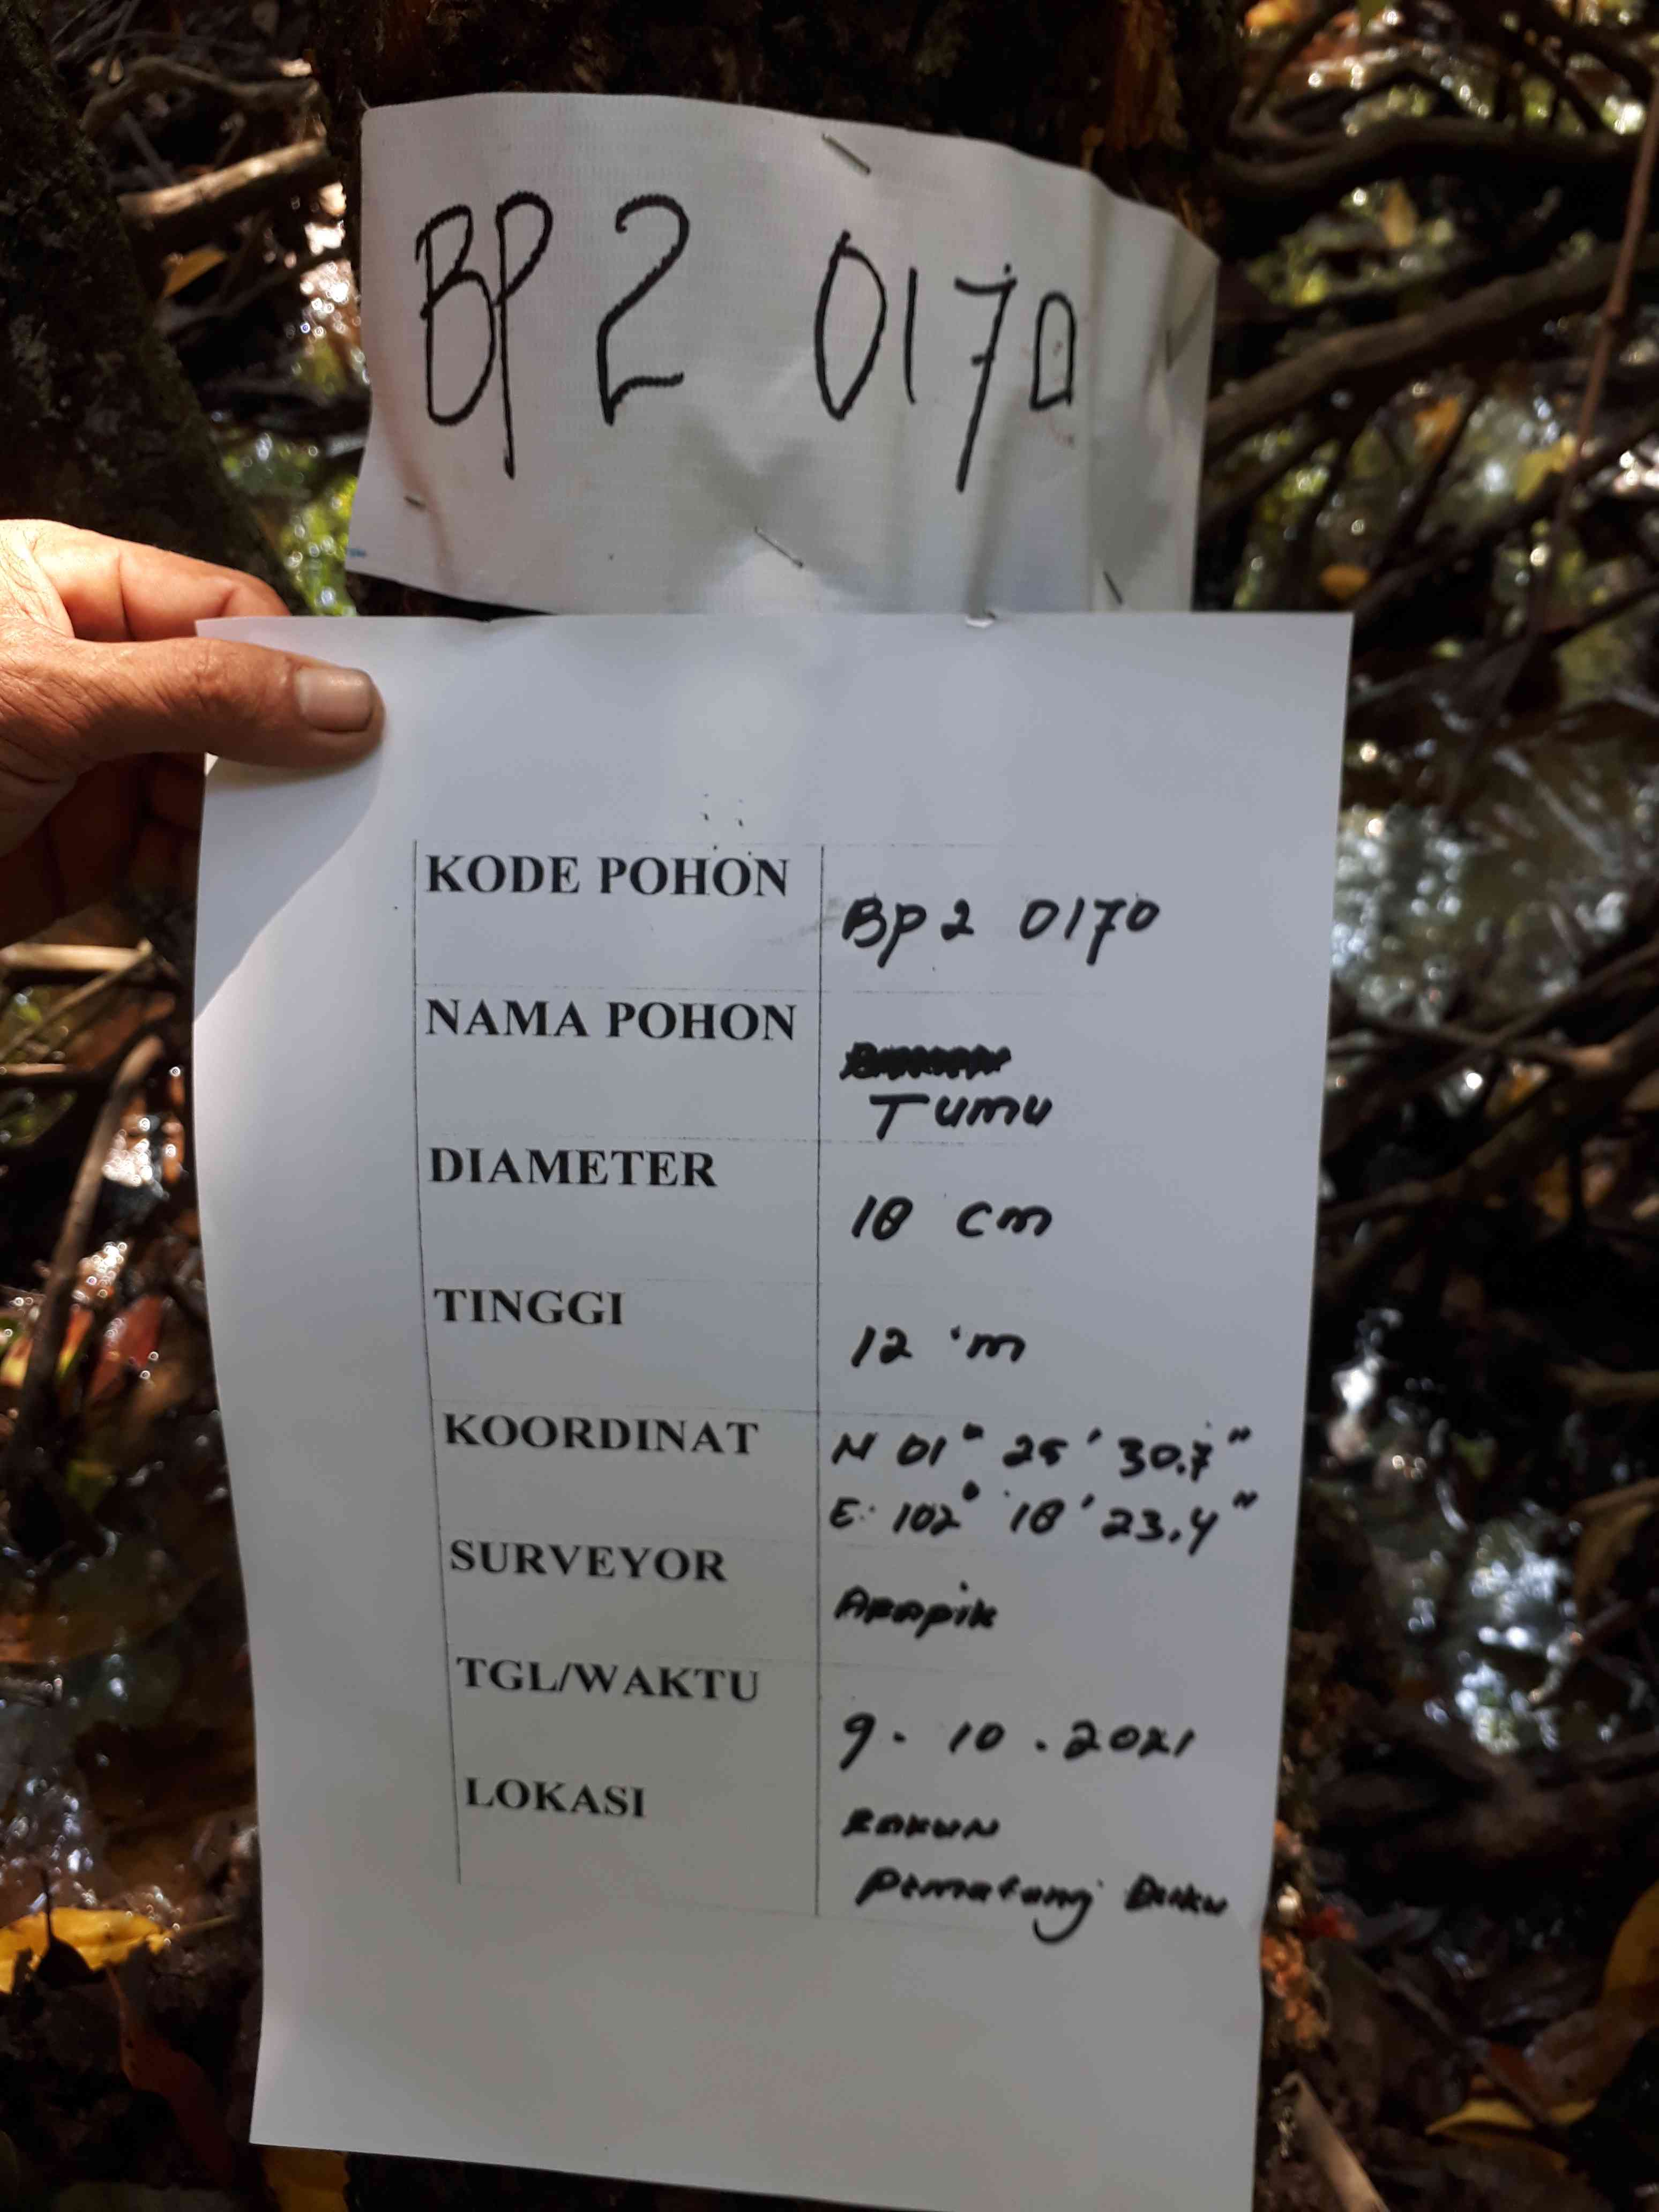 BP 2 0170
KODE POHON
BP2 0170
NAMA POHON
Tumu
DIAMETER
18 cm
TINGGI
12 m
KOORDINAT
N 01° 25' 30.7"
E: 102° 18' 23.4"
SURVEYOR
TGL/WAKTU
9. 10. 2021
LOKASI
Pematang Duku